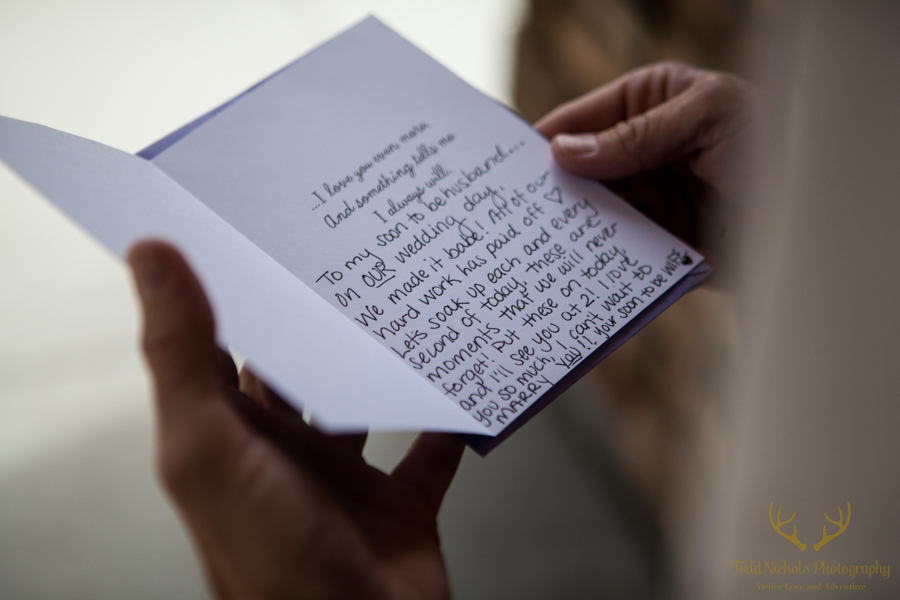 ...I love you even more.
And something tells me
I always will.
To my soon to be husband...
on OUR wedding day,
We made it babe! All of our
hard work has paid off ♡
Let's soak up each and every
second of today, these are
moments that we will never
forget! Put these on today,
and I'll see you at 2! I love
you so much, I can't wait to
MARRY you!! your soon to be WIFE ♥
Todd Nichols Photography
Atelier Love and Adventure